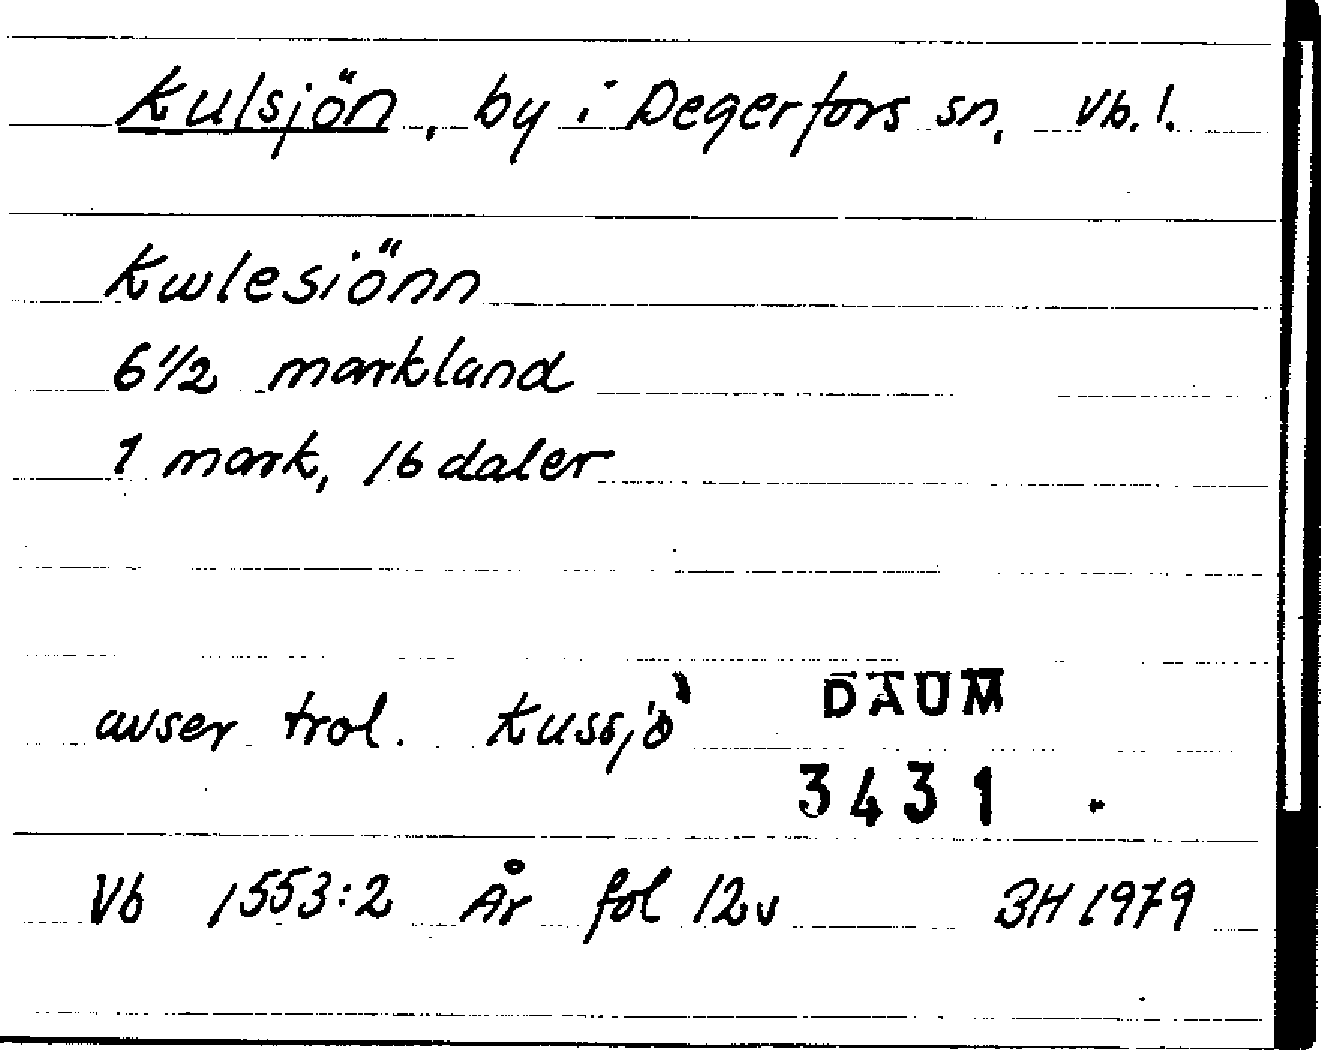 Kulsjön, by i Degerfors sn, Vb. l.
Kwlesiönn
6 1/2 markland
1 mark, 16 daler
avser trol. Kussjö
DAUM
3431
Vb 1553:2 År fol 12v BH 1979